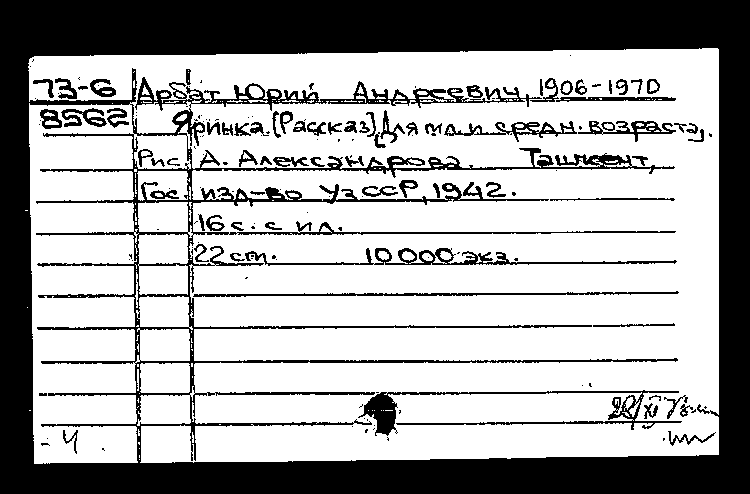 73-6 Арбат, Юрий Андреевич, 1906-1970
8562 Яринка. [Рассказ]. [Для мл. и средн. возраста].
Рис. А. Александрова. Ташкент,
Гос. изд-во УзССР, 1942.
16 с. с ил.
22 см. 10 000 экз.
28/XI
- Ч .